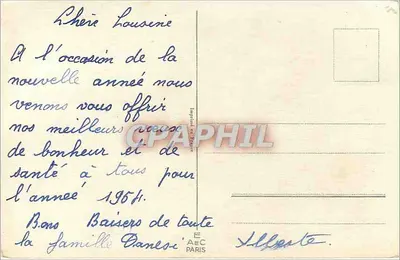 Chère Cousine
A l'occasion de la
nouvelle année nous
venons vous offrir
nos meilleurs vœux
de bonheur et de
santé à tous pour
l'année 1964.
Bons Baisers de toute
la famille Danesi
CPAPHIL
E
AEC
PARIS